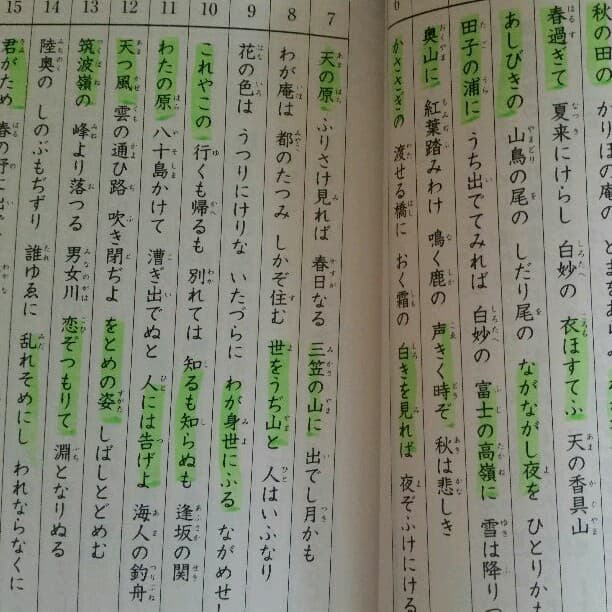 秋の田の かりほの庵の とまをあ
春過ぎて 夏来にけらし 白妙の 衣ほすてふ 天の香具山
あしびきの 山鳥の尾の しだり尾の ながながし夜を ひとりか
田子の浦に うち出でてみれば 白妙の 富士の高嶺に 雪は降りつ
奥山に 紅葉踏みわけ 鳴く鹿の 声きく時ぞ 秋は悲しき
6 かささぎの 渡せる橋に おく霜の 白きを見れば 夜ぞふけにける
7 天の原 ふりさけ見れば 春日なる 三笠の山に 出でし月かも
8 わが庵は 都のたつみ しかぞ住む 世をうぢ山と 人はいふなり
9 花の色は うつりにけりな いたづらに わが身世にふる ながめせし
10 これやこの 行くも帰るも 別れては 知るも知らぬも 逢坂の関
11 わたの原 八十島かけて 漕ぎ出でぬと 人には告げよ 海人の釣舟
12 天つ風 雲の通ひ路 吹き閉ぢよ をとめの姿 しばしとどめむ
13 筑波嶺の 峰より落つる 男女川 恋ぞつもりて 淵となりぬる
14 陸奥の しのぶもぢずり 誰ゆゑに 乱れそめにし われならなくに
15 君がため 春の野に出